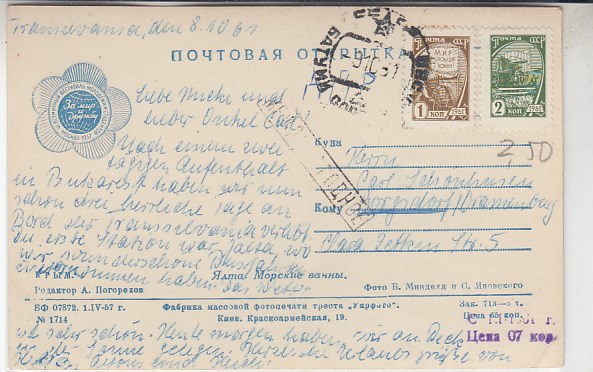 Transilvania, den 8.10.61
ПОЧТОВАЯ ОТКРЫТКА
ПОЧТА СССР
МИР
1 КОП 1961
ПОЧТА СССР
2 КОП 1961
БАТУМИ
За мир и дружбу
МОСКВА 1957
2,50
Liebe Mieke und
lieber Onkel Carl!
Nach einem zwei
tägigen Aufenthalt
in Bukarest haben wir nun
schon drei herrliche Tage an
Bord der Transsilvania verlebt
die erste Station war Jalta, wo
wir
haben. Das Wetter
Куда
Herrn
Carl
Кому
Clara Zetkin Str. 5
КРЫМ.
Ялта. Морские ванны.
Редактор А. Погорелов
Фото Б. Минделя и С. Яновского
БФ 07872. 1.IV-57 г.
№ 1714
Фабрика массовой фотопечати треста „Укрфото".
Киев. Красноармейская, 19.
Зак. 713—3 т.
Цена 65 коп.
С 1.I-1961 г.
Цена 07 коп.
sehr schön. Heute morgen haben wir an Deck
in der Sonne gelegen. Herzliche Urlaubsgrüße von